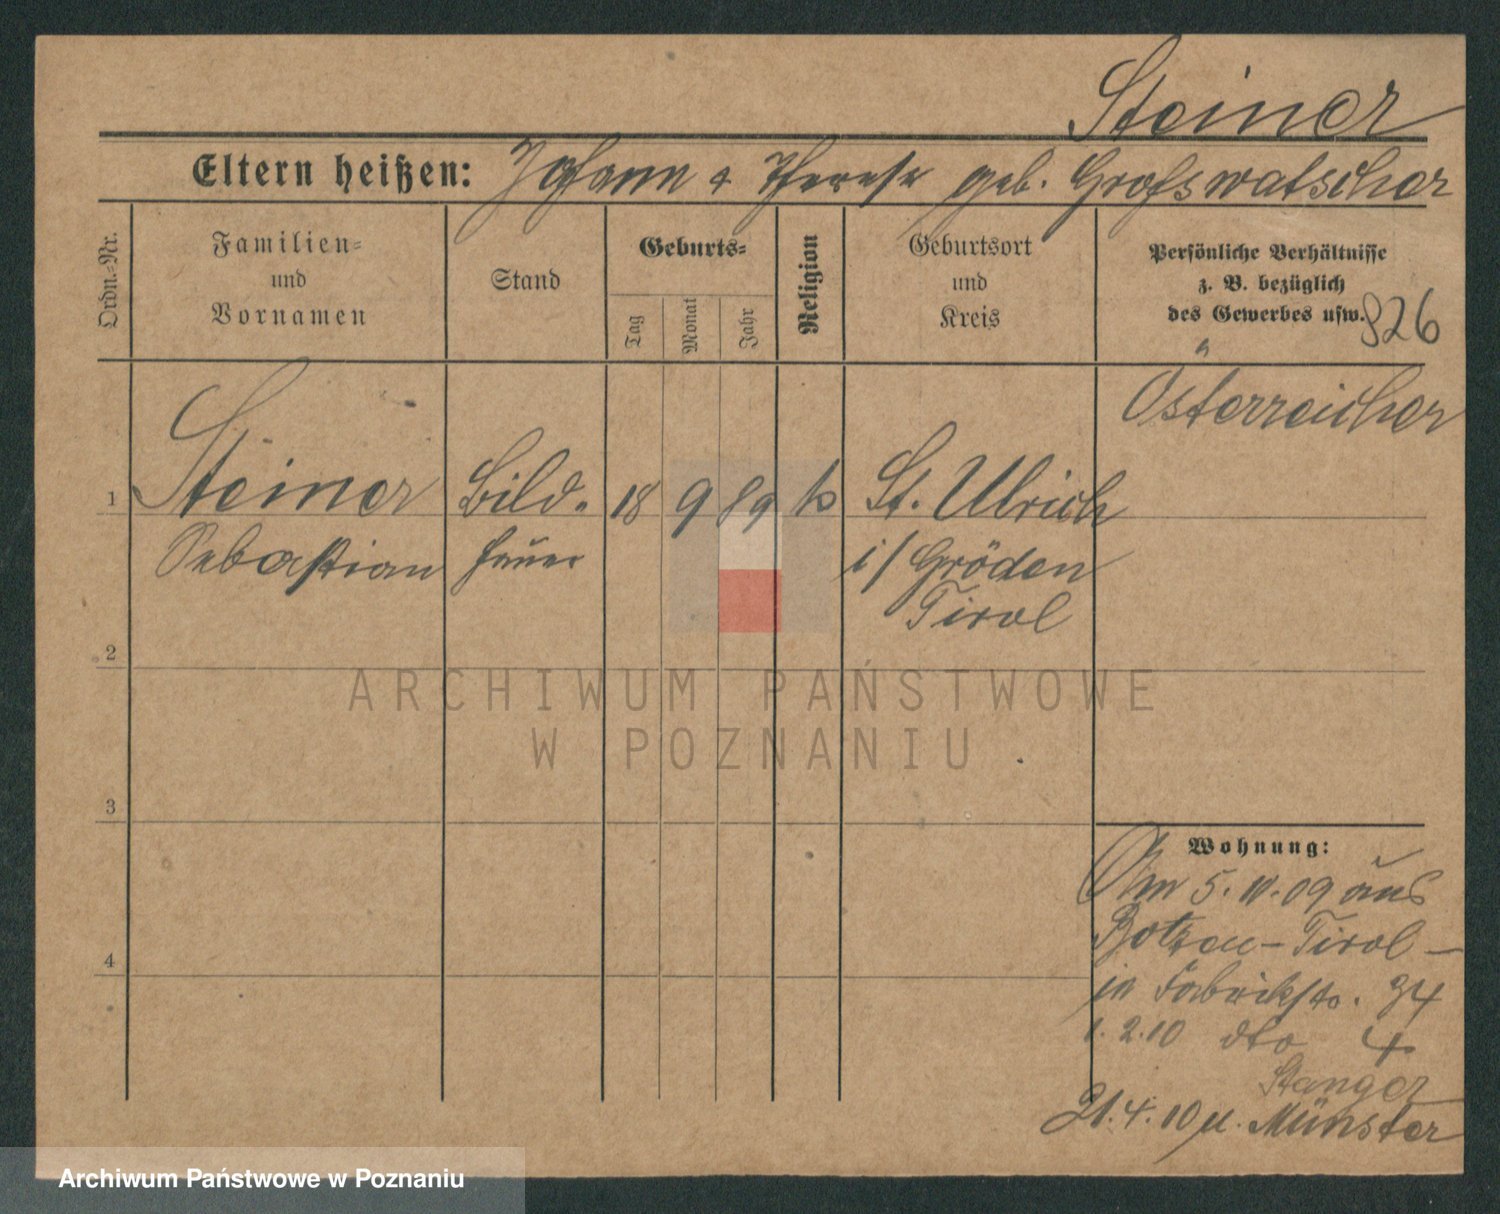 Steiner
Eltern heißen: Johann & Therese geb. Großwatscher
Ordn.-Nr.
Familien-
und
Vornamen
Stand
Geburts-
Tag
Monat
Jahr
Religion
Geburtsort
und
Kreis
Persönliche Verhältnisse
z. B. bezüglich
des Gewerbes usw.
826
Österreicher
1
Steiner
Bild-
18
9
89
k
St. Ulrich
Sebastian
hauer
i/ Gröden
Tirol
2
3
4
ARCHIWUM PAŃSTWOWE
W POZNANIU
Wohnung:
Am 5. 11. 09 aus
Botzen - Tirol -
in Fabrikstr. 34
1. 2. 10 dto 4
Stanger
21. 4. 10 n. Münster
Archiwum Państwowe w Poznaniu